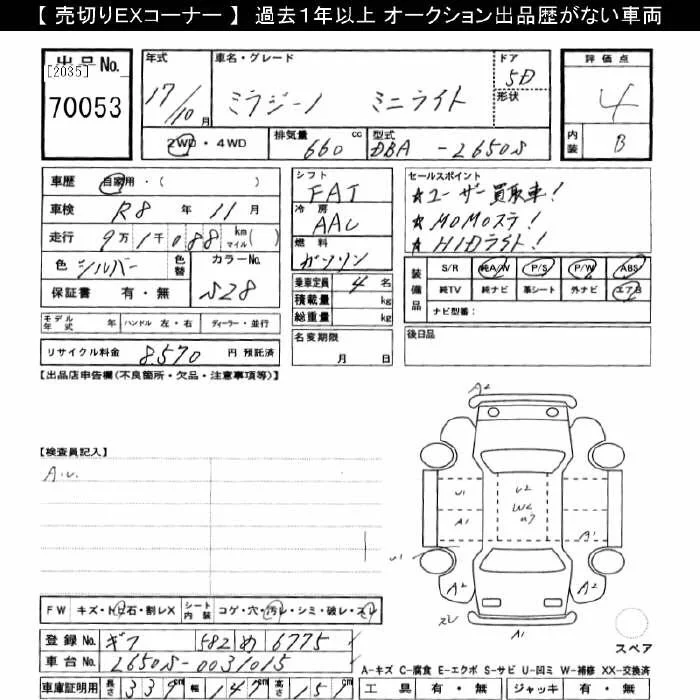 【 売切りEXコーナー 】 過去１年以上 オークション出品歴がない車両
出品No.
[2035]
70053
年式
17/10月
車名・グレード
ミラジーノ ミニライト
ドア
5D
形状
評価点
4
内装
B
2WD・4WD
排気量
660 cc
型式
DBA -L650S
車歴 自家用・( )
車検 R8 年 11 月
走行 9万1千088 km マイル ( )
色 シルバー
色替
カラーNo.
S28
保証書 有・無
シフト
FAT
冷房
AAC
燃料
ガソリン
乗車定員 4 名
積載量 kg
総重量 kg
セールスポイント
☆ユーザー買取車!
☆MOMOステ!
☆HIDライト!
装備品
S/R 純A/W P/S P/W ABS
純TV 純ナビ 革シート 外ナビ エアB
ナビ型番:
モデル年式 年 ハンドル 左・右 ディーラー・並行
リサイクル料金 8570 円 預託済
名変期限
月 日
後日品
【出品店申告欄(不良箇所・欠品・注意事項等)】
【検査員記入】
A.U.
A2
U1
U2
W2
U7
A1
A1
U1
A2
A2
スレ
A1
スペア
FW キズ・ト石・割レX シート内装 コゲ・穴・汚レ・シミ・破レ・スレ
登録No. ギフ 582 め 6775
車台No. L650S-0031015
車庫証明用 長さ 339 cm 幅 147 cm 高さ 151 cm
A-キズ C-腐食 E-エクボ S-サビ U-凹ミ W-補修 XX-交換済
工具 有・無 ジャッキ 有・無